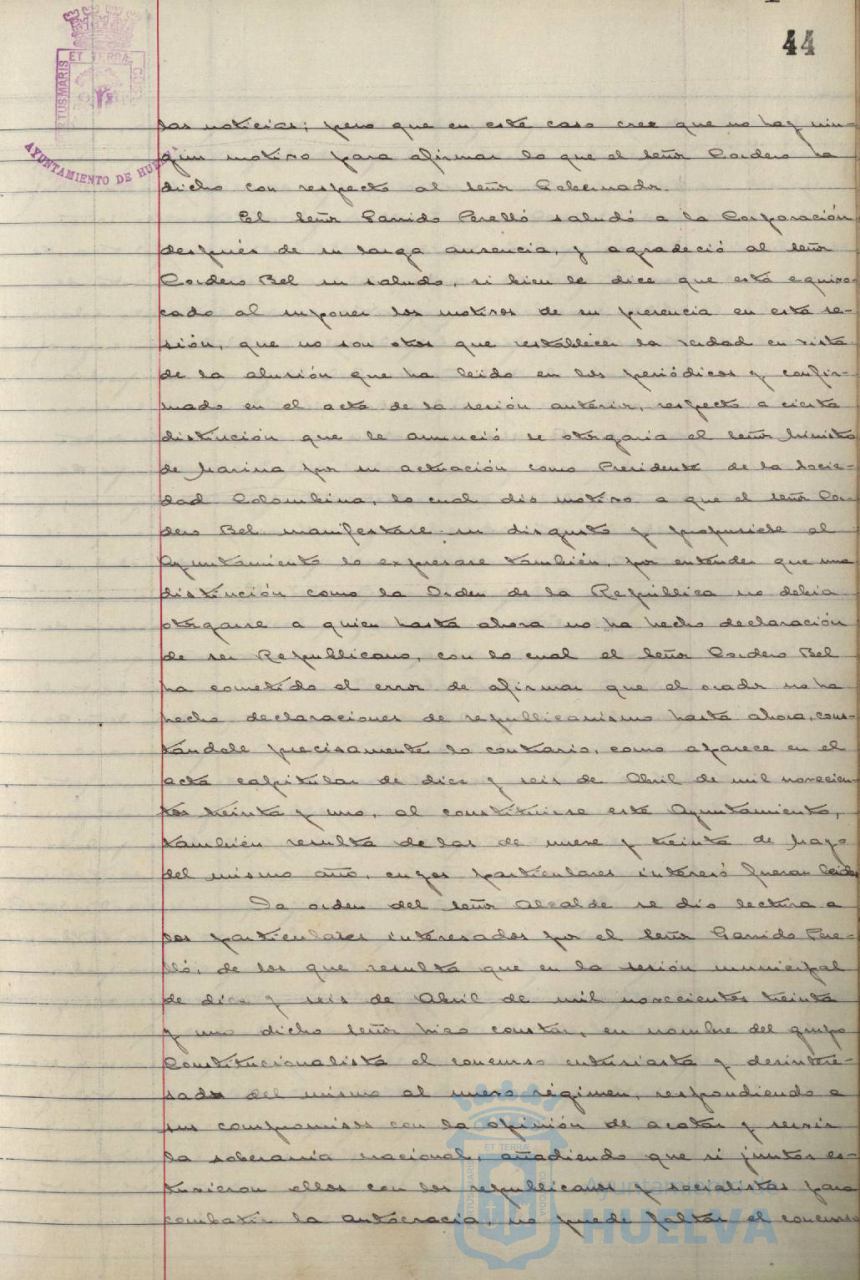 44
ET TERRÆ
AYUNTAMIENTO DE HUELVA
las noticias; pero que en este caso cree que no hay nin-
gun motivo para afirmar lo que el señor Cordero ha
dicho con respecto al señor Gobernador.
El señor Garrido Perelló saludó a la Corporación
después de su larga ausencia, y agradeció al señor
Cordero Bel su saludo, si bien le dice que está equivo-
cado al suponer los motivos de su presencia en esta se-
sión, que no son otros que restablecer la verdad en vista
de la alusión que ha leido en los periódicos y confir-
mado en el acta de la sesión anterior, respecto a cierta
distinción que le anunció se otorgaria el señor Ministro
de Marina por su actuación como Presidente de la Socie-
dad Colombina, lo cual dio motivo a que el señor Cor-
dero Bel manifestare su disgusto y propusiese al
Ayuntamiento lo expresase también, por entender que una
distinción como la Orden de la República no debia
otorgarse a quien hasta ahora no ha hecho declaración
de ser Republicano, con lo cual el señor Cordero Bel
ha cometido el error de afirmar que el orador no ha
hecho declaraciones de republicanismo hasta ahora, cons-
tándole precisamente lo contrario, como aparece en el
acta capitular de diez y seis de Abril de mil novecien-
tos treinta y uno, al constituirse este Ayuntamiento,
también resulta de las de nueve y treinta de Mayo
del mismo año, cuyos particulares interesó fueran leidos
De orden del señor Alcalde se dio lectura a
los particulares interesados por el señor Garrido Pere-
lló, de los que resulta que en la sesión municipal
de diez y seis de Abril de mil novecientos treinta
y uno dicho señor hizo constar, en nombre del grupo
Constitucionalista el concurso entusiasta y desintere-
sado del mismo al nuevo régimen, respondiendo a
sus compromisos con la opinión de acatar y servir
la soberania nacional, añadiendo que si juntos es-
tuvieron ellos con los republicanos y socialistas para
combatir la autocracia, no puede faltar el concurso
ET TERRÆ
Ayuntamiento de
HUELVA